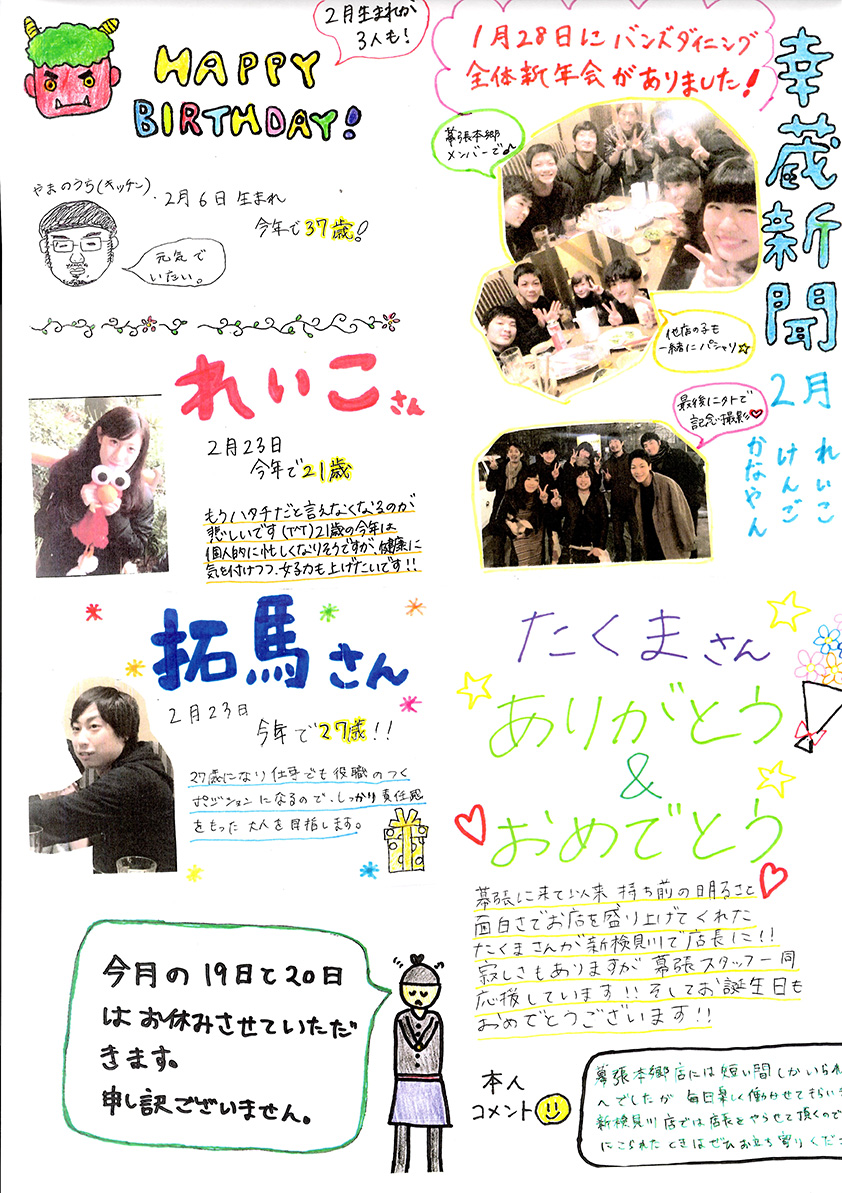 幸蔵新聞
2月
れいこ
けんご
かなやん
1月28日にバンズダイニング
全体新年会がありました!
幕張本郷
メンバーで♪
他店の子も
一緒にパシャリ☆
最後にソトで
記念撮影♡
2月生まれが
3人も!
HAPPY
BIRTHDAY!
やまのうち(キッチン)
2月6日生まれ
今年で37歳!
元気で
いたい。
れいこさん
2月23日
今年で21歳
もうハタチだと言えなくなるのが
悲しいです(TT)21歳の今年は
個人的に忙しくなりそうですが、健康に
気を付けつつ、女子力も上げたいです!!
拓馬さん
2月23日
今年で27歳!!
27歳になり仕事でも役職のつく
ポジションになるので、しっかり責任感
をもった大人を目指します。
たくまさん
ありがとう
&
おめでとう
幕張に来て以来持ち前の明るさと
面白さでお店を盛り上げてくれた
たくまさんが新検見川で店長に!!
寂しさもありますが幕張スタッフ一同
応援しています!!そしてお誕生日も
おめでとうございます!!
今月の19日と20日
はお休みさせていただ
きます。
申し訳ございません。
本人
コメント
幕張本郷店には短い間しかいられ
へでしたが毎日楽しく働かせてもらい
新検見川店では店長をやらせて頂くので
にこられたときはぜひお立ち寄りくだ